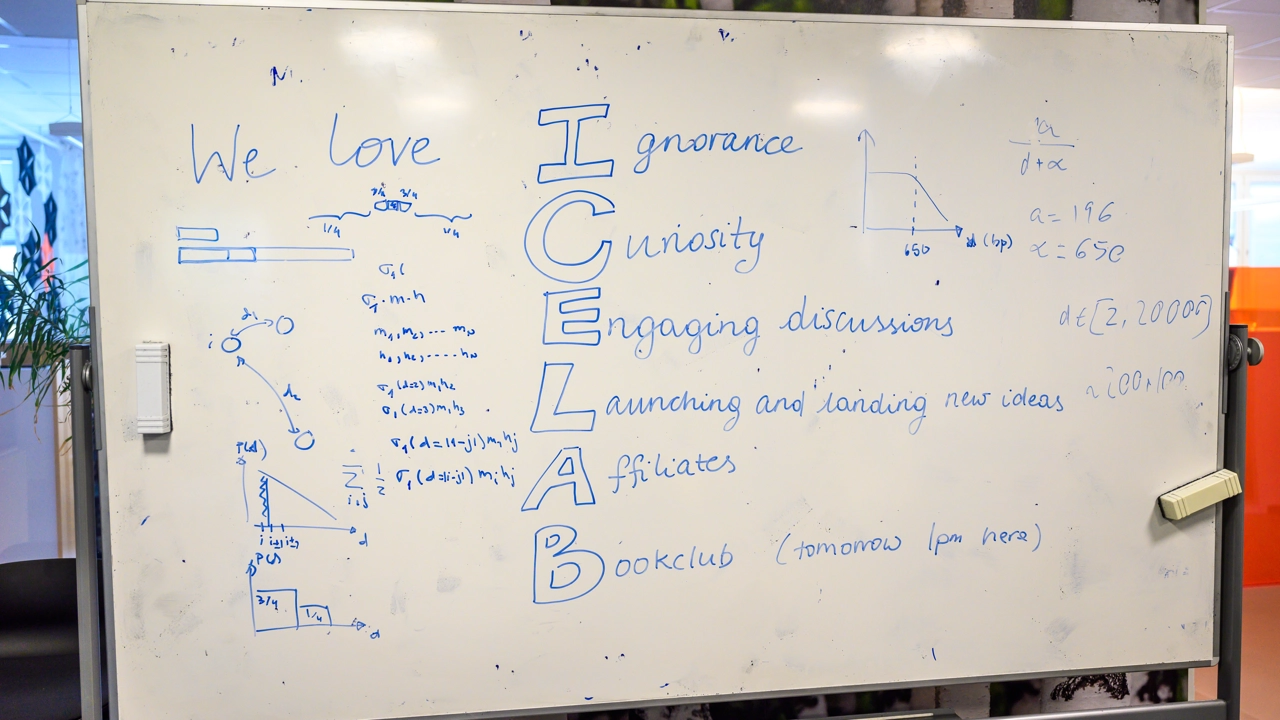 We love
Ignorance
Curiosity
Engaging discussions
Launching and landing new ideas
Affiliates
Bookclub (tomorrow 1pm here)
3/4
1/4
1/4
σ₁(
σ₁·m·h
m₁, m₂, ---- m_N
h₁, h₂, ---- h_N
σ₁(d=2) m₁h₂
σ₁(d=3) m₁h₃
σ₁(d=|1-j|) m₁hⱼ
Σ i,j 1/2 σ₁(d=|i-j|) mᵢhⱼ
i
d₁
d₂
P(d)
i i+1 i+2
d
3/4
1/4
d
650
(bp)
a
d+α
a=196
α=650